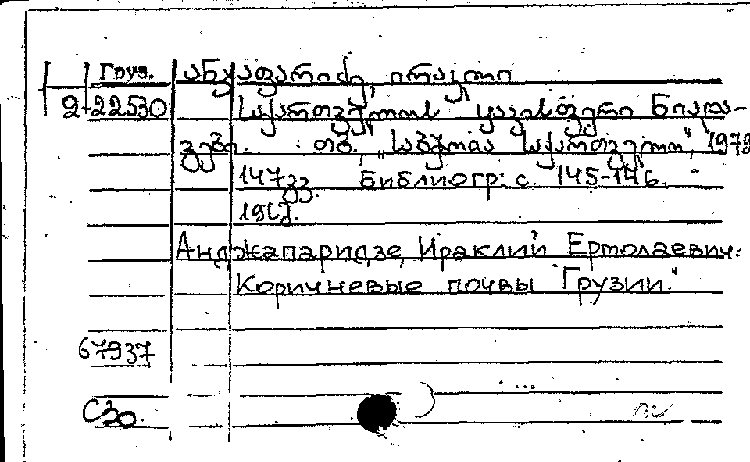 Груз. ანჯაფარიძე, ირაკლი
2-22530 საქართველოს ყავისფერი ნიადა-
გები. თბ. "საბჭოთა საქართველო", 1979
147 გვ. Библиогр: с. 145-146.
Анджапаридзе, Ираклий Ермолаевич.
Коричневые почвы Грузии."
67937
С30.